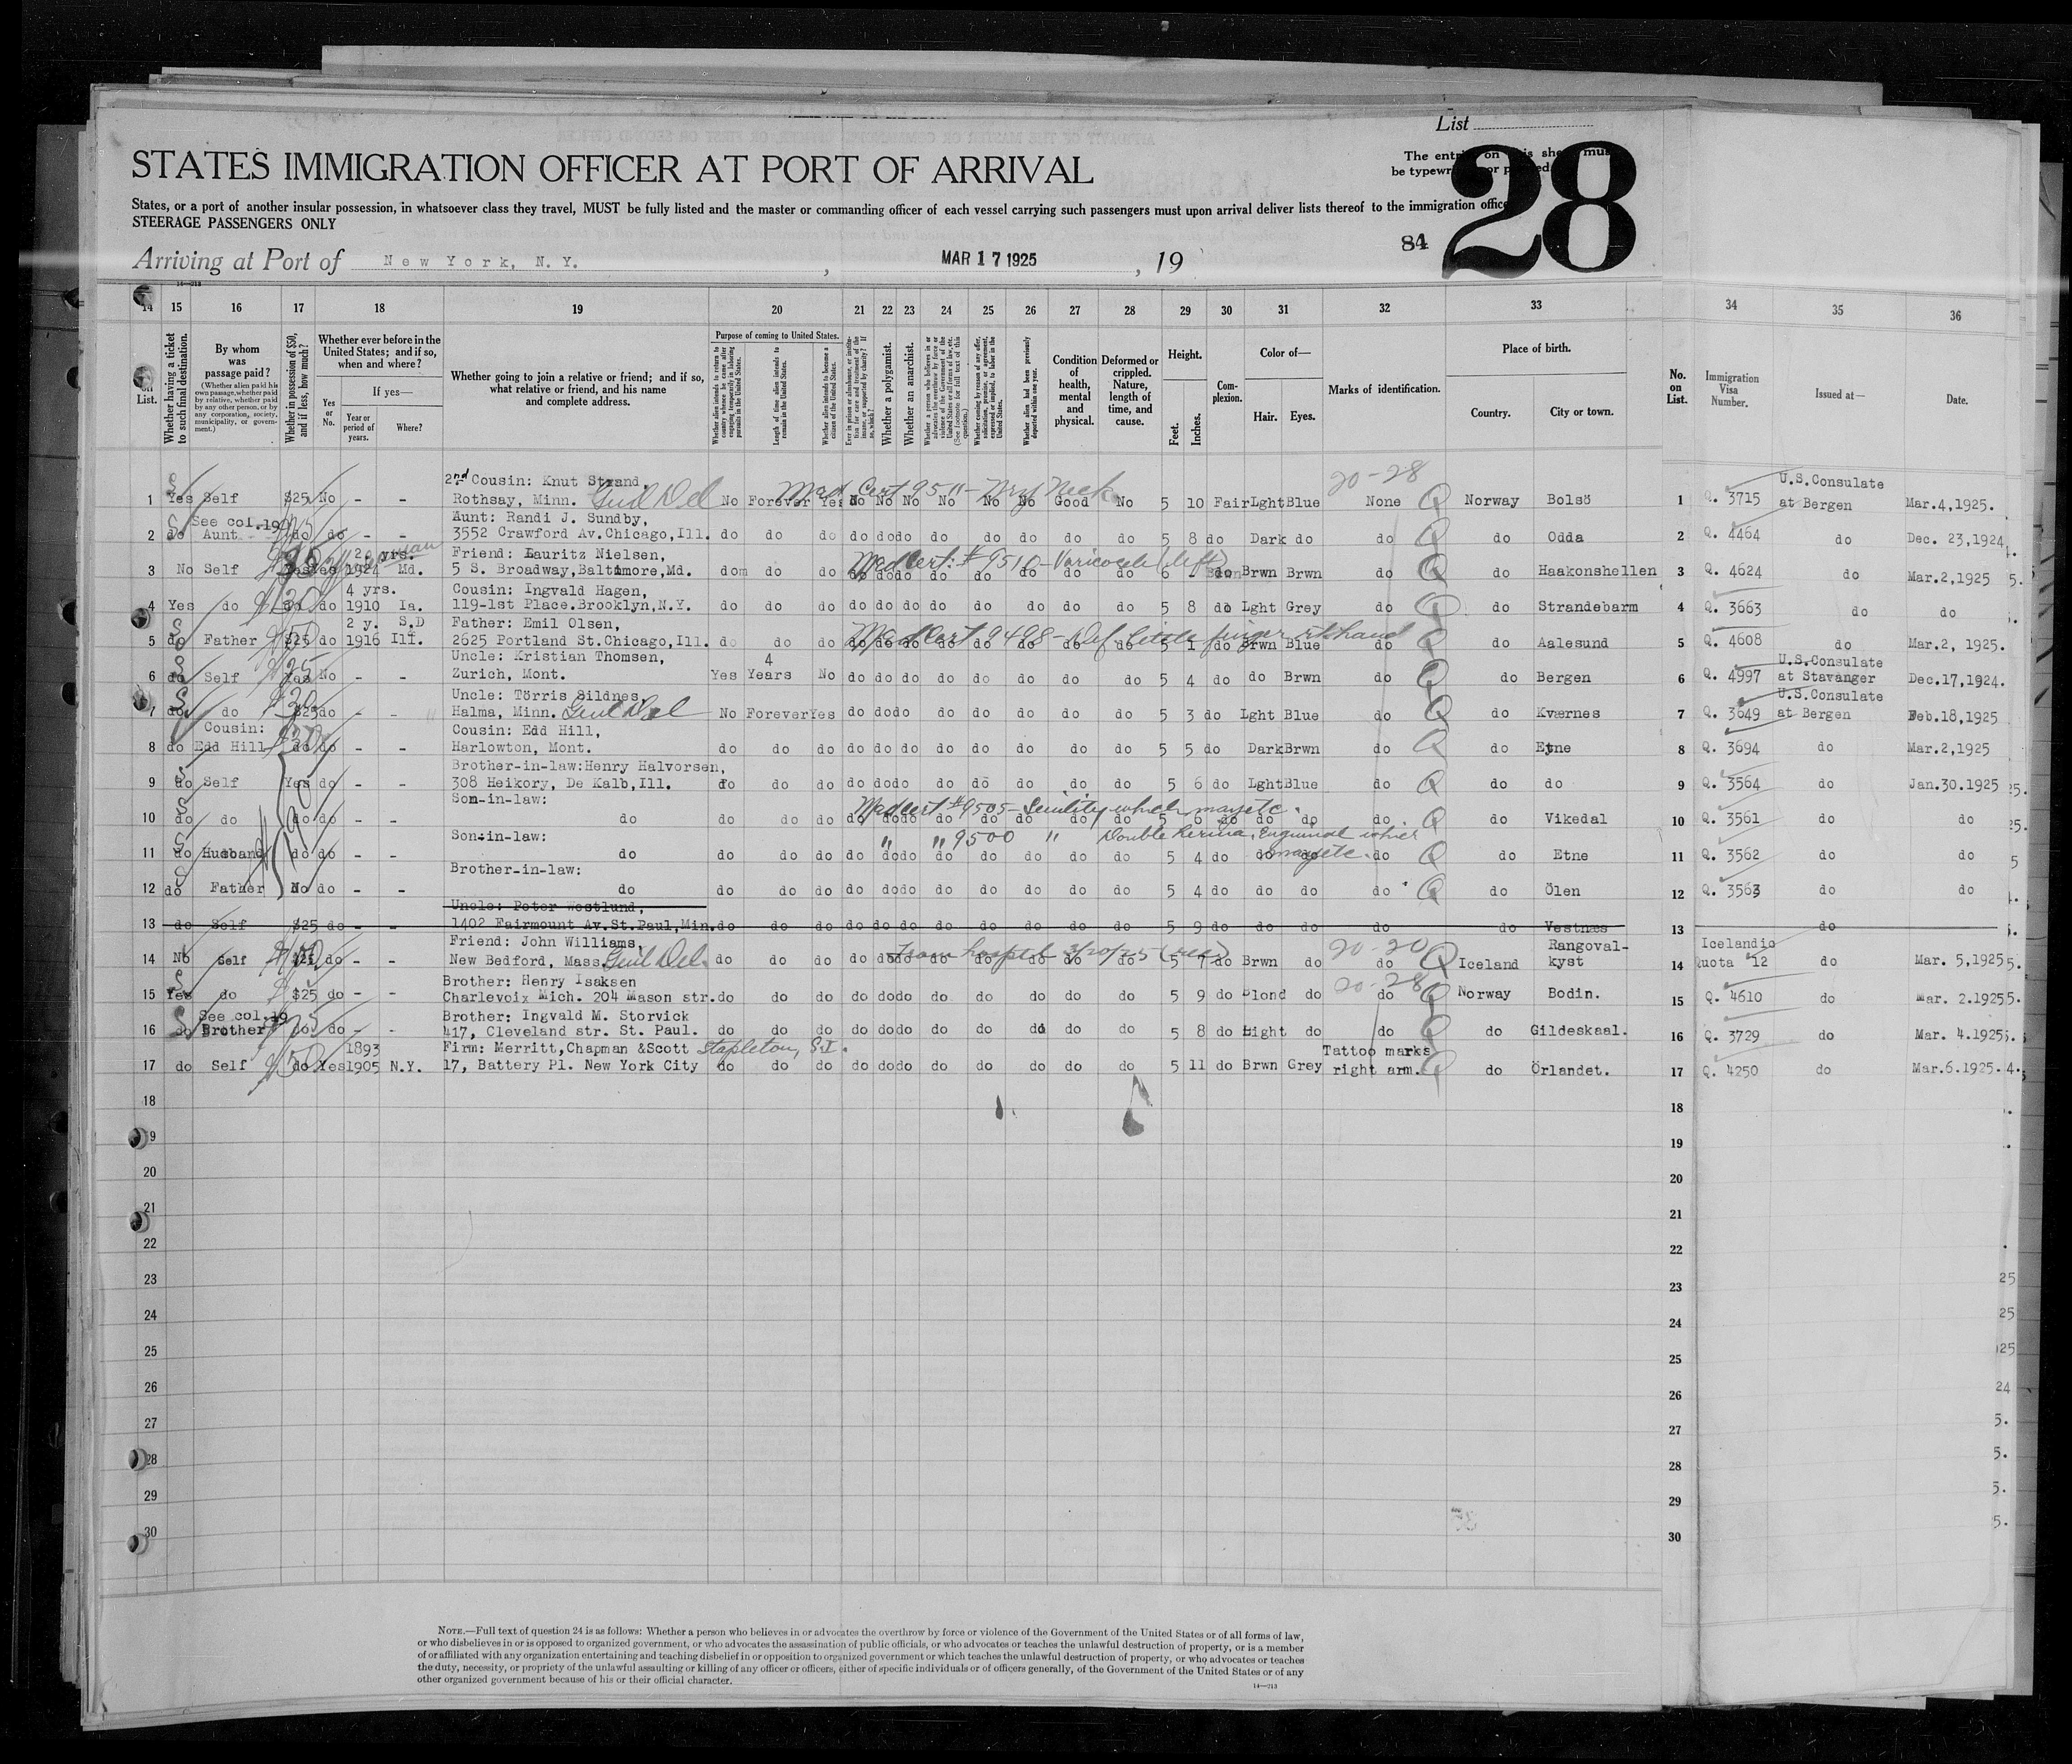 List
The entries on this sheet must
be typewritten or printed
28
84
STATES IMMIGRATION OFFICER AT PORT OF ARRIVAL
States, or a port of another insular possession, in whatsoever class they travel, MUST be fully listed and the master or commanding officer of each vessel carrying such passengers must upon arrival deliver lists thereof to the immigration office
STEERAGE PASSENGERS ONLY
Arriving at Port of New York, N. Y. , MAR 17 1925 , 19
14 15 16 17 18 19 20 21 22 23 24 25 26 27 28 29 30 31 32 33 34 35 36
No. on List.
Whether having a ticket to such final destination.
By whom was passage paid?
(Whether alien paid his own passage, whether paid by relative, whether paid by any other person, or by any corporation, society, municipality, or government.)
Whether in possession of $50, and if less, how much?
Whether ever before in the United States; and if so, when and where?
Yes or No.
If yes—
Year or period of years.
Where?
Whether going to join a relative or friend; and if so, what relative or friend, and his name and complete address.
Purpose of coming to United States.
Whether alien intends to return to country whence he came after engaging temporarily in laboring pursuits in the United States.
Length of time alien intends to remain in the United States.
Whether alien intends to become a citizen of the United States.
Whether a polygamist.
Whether an anarchist.
Condition of health, mental and physical.
Deformed or crippled. Nature, length of time, and cause.
Height.
Feet. Inches.
Complexion.
Color of—
Hair. Eyes.
Marks of identification.
Place of birth.
Country. City or town.
No. on List.
Immigration Visa Number.
Issued at—
Date.
2nd Cousin: Knut Strand, U.S.Consulate
Med Cert 9511 - Wry Neck 20-28
1 Yes Self $25 No - - Rothsay, Minn. No Forever Yes No No No No No No Good No 5 10 Fair Lght Blue None Q Norway Bolsö 1 Q. 3715 at Bergen Mar.4,1925.
See col.19 Aunt: Randi J. Sundby,
2 do Aunt do do - - 3552 Crawford Av.Chicago,Ill. do do do do do do do do do do do 5 8 do Dark do do Q do Odda 2 Q. 4464 do Dec. 23,1924
2 yrs. Friend: Lauritz Nielsen,
Med Cert: #9510 - Varicocele (left)
3 No Self Yes 1924 Md. 5 S. Broadway,Baltimore,Md. do do do do do do do do do do do 6 - do Brwn Brwn do Q do Haakonshellen 3 Q. 4624 do Mar.2,1925
4 yrs. Cousin: Ingvald Hagen,
4 Yes do $30 do do 1910 Ia. 119-1st Place.Brooklyn,N.Y. do do do do do do do do do do do 5 8 do Lght Grey do Q do Strandebarm 4 Q. 3663 do do
2 y. S.D Father: Emil Olsen,
Med Cert 9498 - Def little finger rt hand
5 do Father $25 do 1916 Ill. 2625 Portland St.Chicago,Ill. do do do do do do do do do do do 5 1 do Brwn Blue do Q do Aalesund 5 Q. 4608 do Mar.2, 1925.
Uncle: Kristian Thomsen, 4 U.S.Consulate
6 do Self $25 Yes No - - Zurich, Mont. Yes Years No do do do do do do do do 5 4 do do Brwn do Q do Bergen 6 Q. 4997 at Stavanger Dec.17,1924.
Uncle: Törris Sildnes, U.S.Consulate
7 do do $25 do - - Halma, Minn. No Forever Yes do do do do do do do do 5 3 do Lght Blue do Q do Kværnes 7 Q. 3649 at Bergen Feb.18,1925
Cousin: Cousin: Edd Hill,
8 do Edd Hill do do - - Harlowton, Mont. do do do do do do do do do do do 5 5 do Dark Brwn do Q do Etne 8 Q. 3694 do Mar.2,1925
Brother-in-law:Henry Halvorsen,
9 do Self Yes do - - 308 Heikory, De Kalb,Ill. do do do do do do do do do do do 5 6 do Lght Blue do Q do do 9 Q. 3564 do Jan.30.1925
Son-in-law: Med cert #9505 - Senility which may etc.
10 do do do do - - do do do do do do do do do do do do 5 6 do do do do Q do Vikedal 10 Q. 3561 do do
Son-in-law: " " 9500 " Double hernia, Inguinal which may etc.
11 do Husband do do - - do do do do do do do do do do do do 5 4 do do do do Q do Etne 11 Q. 3562 do do
Brother-in-law:
12 do Father No do - - do do do do do do do do do do do do 5 4 do do do do Q do Ölen 12 Q. 3563 do do
Uncle: Peter Westlund,
13 do Self $25 do - - 1402 Fairmount Av.St.Paul,Min. do do do do do do do do do do do 5 9 do do do do do Vestnæs 13 do
Friend: John Williams, from hospital 3/20/25 20-20 Rangoval- Icelandic
14 No Self do - - New Bedford, Mass. do do do do do do do do do do do 5 7 do Brwn do do Q Iceland kyst 14 quota 12 do Mar. 5,1925
Brother: Henry Isaksen 20-28
15 Yes do $25 do - - Charlevoix Mich. 204 Mason str. do do do do do do do do do do do 5 9 do Blond do do Q Norway Bodin. 15 Q. 4610 do Mar. 2.1925
See col.19 Brother: Ingvald M. Storvick
16 do Brother do do - - 417, Cleveland str. St. Paul. do do do do do do do do do do do 5 8 do Light do do Q do Gildeskaal. 16 Q. 3729 do Mar. 4.1925
1893 Firm: Merritt,Chapman &Scott Stapleton, S.I. Tattoo marks
17 do Self $50 do Yes 1905 N.Y. 17, Battery Pl. New York City do do do do do do do do do do do 5 11 do Brwn Grey right arm. Q do Örlandet. 17 Q. 4250 do Mar.6.1925.
18 18
19 19
20 20
21 21
22 22
23 23
24 24
25 25
26 26
27 27
28 28
29 29
30 30
NOTE.—Full text of question 24 is as follows: Whether a person who believes in or advocates the overthrow by force or violence of the Government of the United States or of all forms of law,
or who disbelieves in or is opposed to organized government, or who advocates the assassination of public officials, or who advocates or teaches the unlawful destruction of property, or is a member
of or affiliated with any organization entertaining and teaching disbelief in or opposition to organized government or which teaches the unlawful destruction of property, or who advocates or teaches
the duty, necessity, or propriety of the unlawful assaulting or killing of any officer or officers, either of specific individuals or of officers generally, of the Government of the United States or of any
other organized government because of his or their official character.
14—213